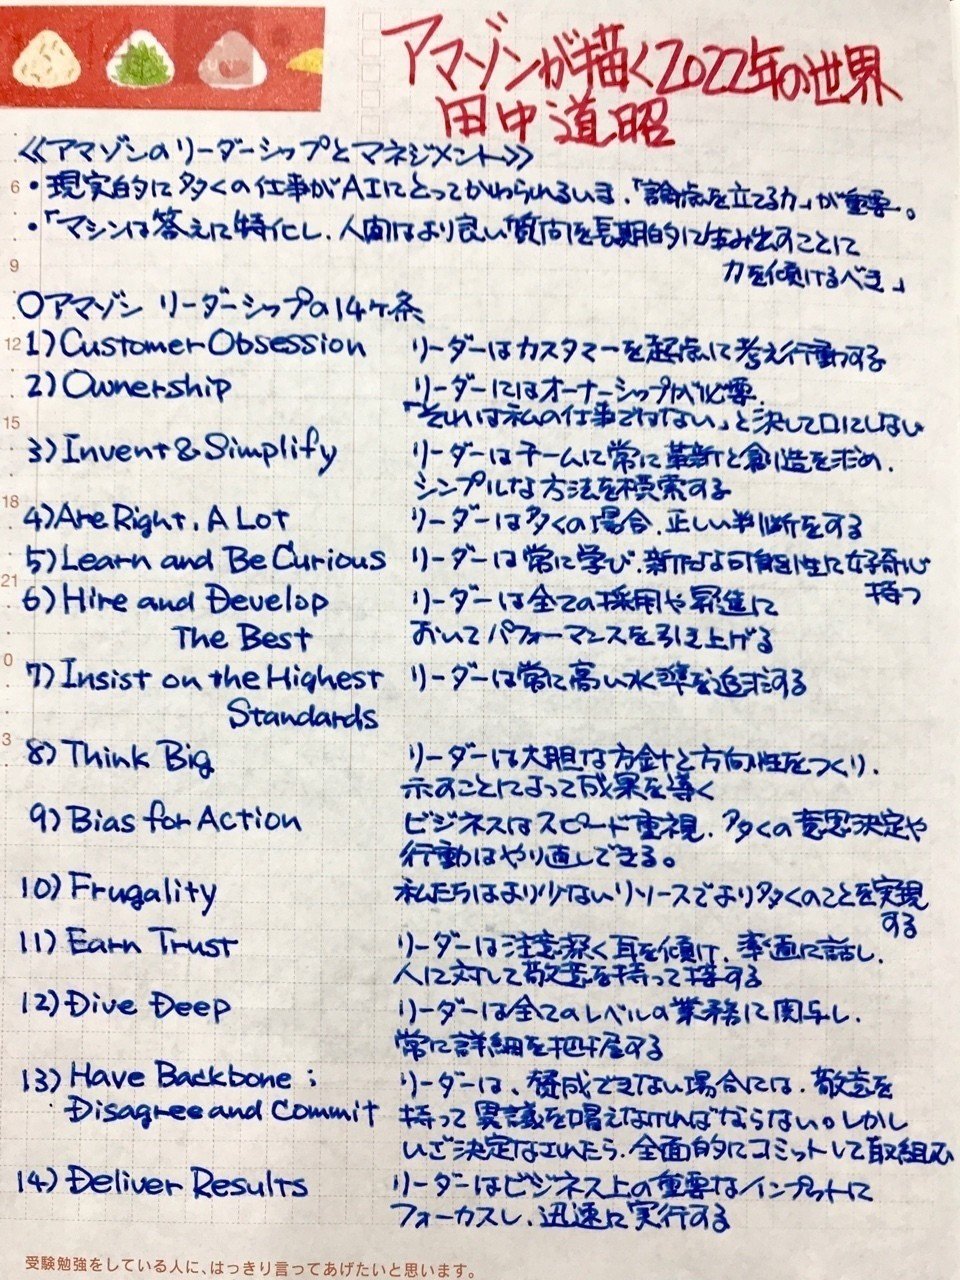 アマゾンが描く2022年の世界
田中道昭
《アマゾンのリーダーシップとマネジメント》
・現実的に多くの仕事がAIにとってかわられるいま、「論点を立てる力」が重要。
・「マシンは答えに特化し、人間はより良い質問を長期的に生み出すことに
力を傾けるべき」
〇アマゾン リーダーシップの14ヶ条
1) Customer Obsession リーダーはカスタマーを起点に考え行動する
2) Ownership リーダーにはオーナーシップが必要、
「それは私の仕事ではない」と決して口にしない
3) Invent & Simplify リーダーはチームに常に革新と創造を求め、
シンプルな方法を模索する
4) Are Right, A Lot リーダーは多くの場合、正しい判断をする
5) Learn and Be Curious リーダーは常に学び、新たな可能性に好奇心
持つ
6) Hire and Develop リーダーは全ての採用や昇進に
The Best おいてパフォーマンスを引き上げる
7) Insist on the Highest リーダーは常に高い水準を追求する
Standards
8) Think Big リーダーは大胆な方針と方向性をつくり、
示すことによって成果を導く
9) Bias for Action ビジネスはスピード重視、多くの意思決定や
行動はやり直しできる。
10) Frugality 私たちはより少ないリソースでより多くのことを実現
する
11) Earn Trust リーダーは注意深く耳を傾け、率直に話し、
人に対して敬意を持って接する
12) Dive Deep リーダーは全てのレベルの業務に関与し、
常に詳細を把握する
13) Have Backbone ; リーダーは、賛成できない場合には、敬意を
Disagree and Commit 持って異議を唱えなければならない。しかし
いざ決定なされたら、全面的にコミットして取組む
14) Deliver Results リーダーはビジネス上の重要なインプットに
フォーカスし、迅速に実行する
6
9
12
15
18
21
0
3
受験勉強をしている人に、はっきり言ってあげたいと思います。